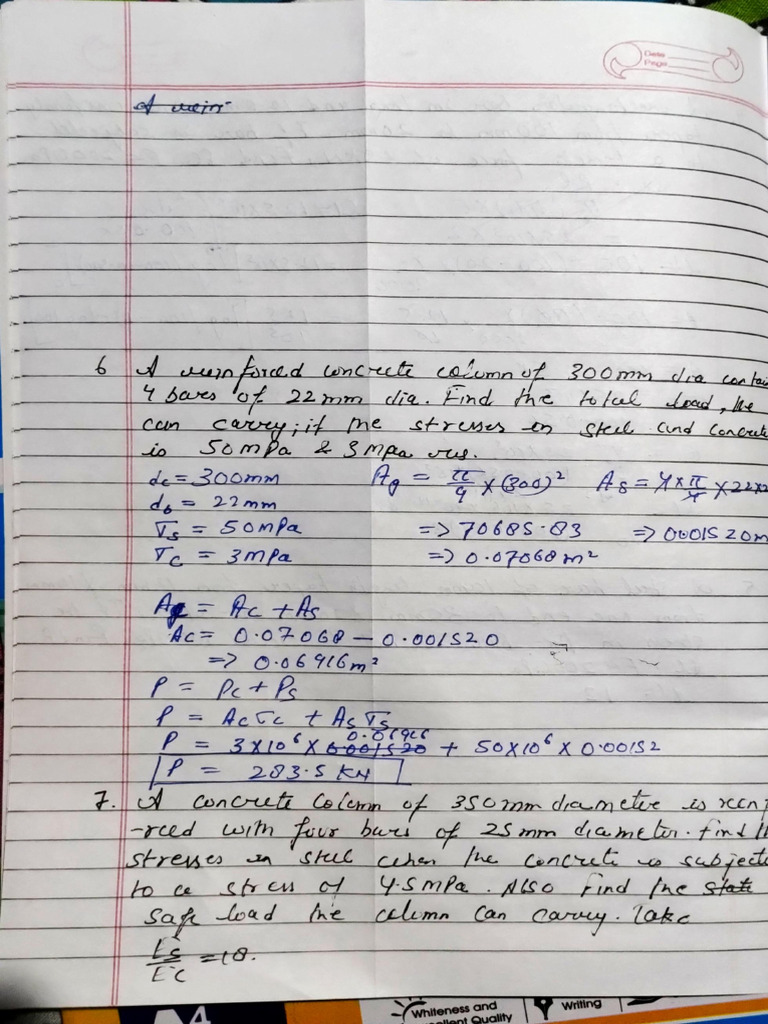 Date
Page
A rein
6 A reinforced concrete column of 300mm dia contai
4 bars of 22 mm dia. Find the total load, the
can carry; if the stresses in steel and concrete
is 50mPa & 3mpa res.
dc = 300mm Ag = π/4 × (300)² As = 4 × π/4 × 22×2
db = 22mm
σs = 50mPa => 70685.83 => 0.001520m
σc = 3mPa => 0.07068 m²
Ag = Ac + As
Ac = 0.07068 - 0.001520
=> 0.06916m²
P = Pc + Ps
P = Acσc + Asσs
0.06916
P = 3×10⁶ × 0.001520 + 50×10⁶ × 0.00152
P = 283.5 KN
7. A concrete column of 350mm diameter is reinf
-rced with four bars of 25mm diameter. find th
stresses in steel when the concrete is subjecte
to a stress of 4.5mPa. Also find the state
safe load the column can carry. Take
Es/Ec = 18.
A4
Whiteness and
ellent Quality
Writing